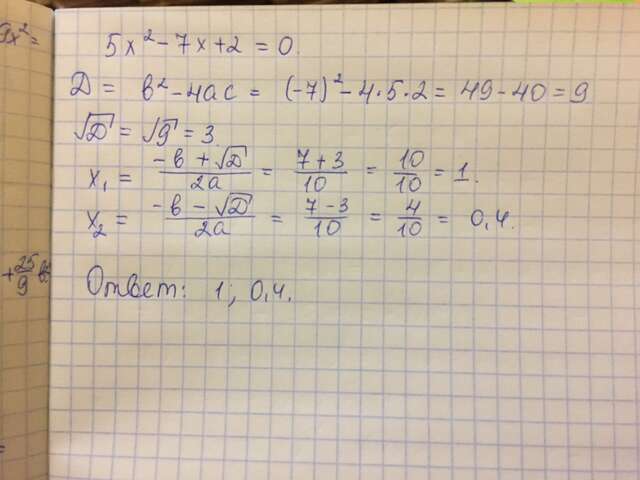 9x² =
5x² - 7x + 2 = 0.
Д = в² - 4ac = (-7)² - 4·5·2 = 49 - 40 = 9
√Д = √9 = 3.
x₁ = (-в + √Д)/2a = (7+3)/10 = 10/10 = 1.
x₂ = (-в - √Д)/2a = (7-3)/10 = 4/10 = 0,4.
+ 25/9
Ответ: 1; 0,4.